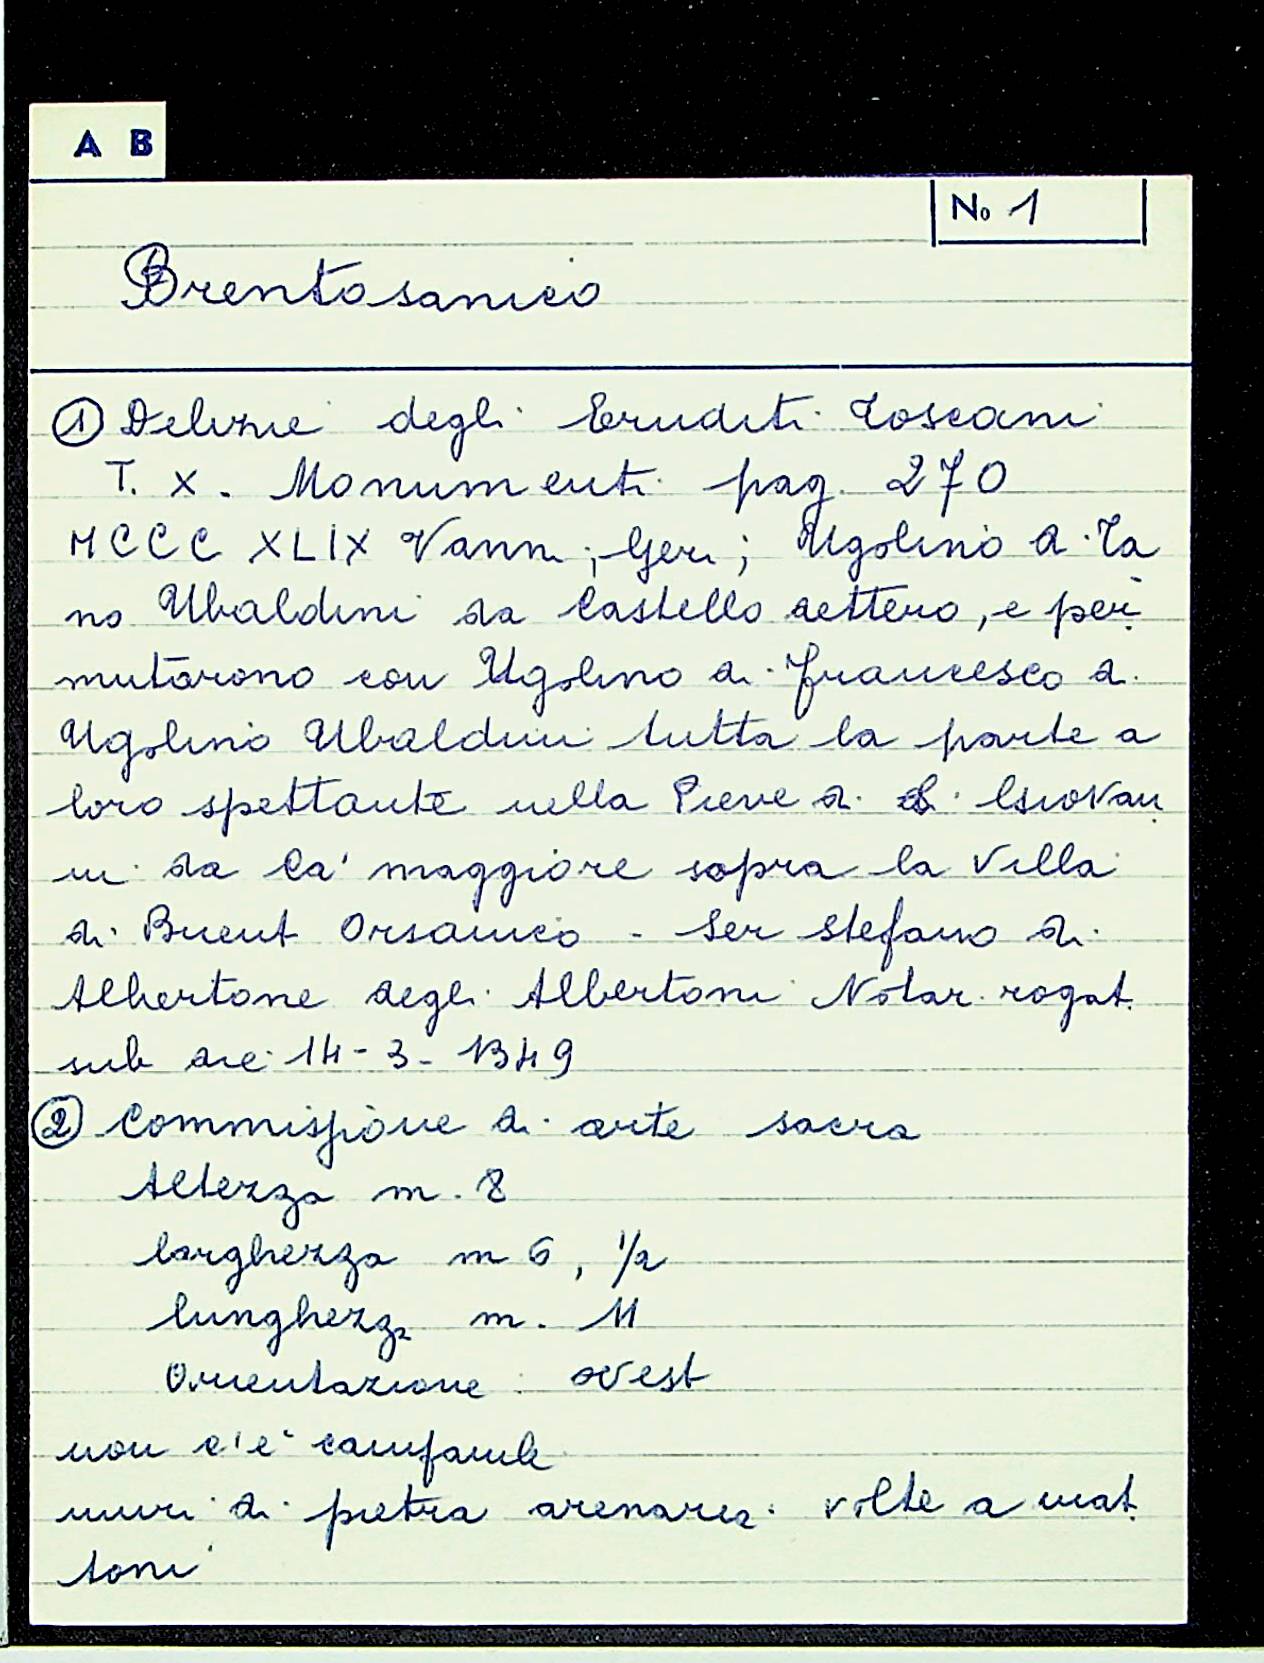 A B
No 1
Brentosanico
① Delizie degli Eruditi Toscani
T. X. Monumenti pag. 270
MCCC XLIX Vanni, Geri; Ugolino di Ta
no Ubaldini da Castello dettero, e per
mutarono con Ugolino di Francesco di
Ugolino Ubaldini tutta la parte a
loro spettante nella Pieve di S. Giovan
ni da Ca' maggiore sopra la Villa
di Brent Orsanico - Ser Stefano di
Albertone degli Albertoni Notar. rogat.
sub die 14-3-1349
② Commissione di arte sacra
Altezza m. 8
larghezza m 6, 1/2
lunghezza m. 11
Orientazione: ovest
non c'e' campanile
muri di pietra arenaria. volte a mat
toni